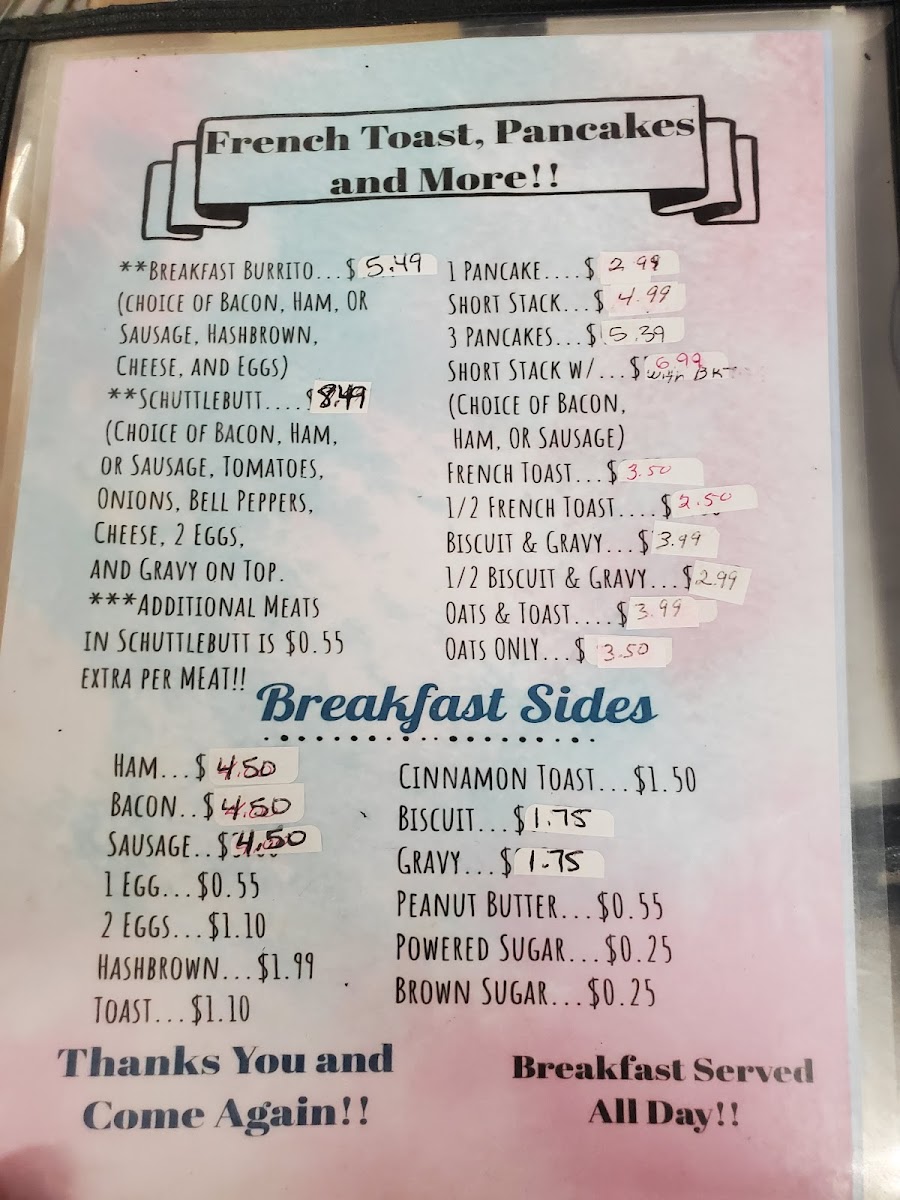 French Toast, Pancakes
and More!!
**Breakfast Burrito...$ 5.49
(choice of Bacon, Ham, or
Sausage, Hashbrown,
Cheese, and Eggs)
**Schuttlebutt....$8.49
(Choice of Bacon, Ham,
or Sausage, Tomatoes,
Onions, Bell Peppers,
Cheese, 2 Eggs,
and Gravy on Top.
***Additional Meats
in Schuttlebutt is $0.55
extra per MEAT!!
1 Pancake....$ 2.99
Short Stack...$ 4.99
3 Pancakes...$ 5.39
Short Stack w/ ...$ 6.99
with
(Choice of Bacon,
Ham, or Sausage)
French Toast...$ 3.50
1/2 French Toast....$ 2.50
Biscuit & Gravy...$ 3.99
1/2 Biscuit & Gravy...$ 2.99
Oats & Toast....$ 3.99
Oats ONLY...$ 3.50
Breakfast Sides
Ham...$ 4.50
Bacon..$ 4.50
Sausage..$ 4.50
1 Egg...$0.55
2 Eggs...$1.10
Hashbrown...$1.99
Toast...$1.10
Cinnamon Toast...$1.50
Biscuit...$ 1.75
Gravy...$ 1.75
Peanut Butter...$0.55
Powered Sugar...$0.25
Brown Sugar...$0.25
Thanks You and
Come Again!!
Breakfast Served
All Day!!